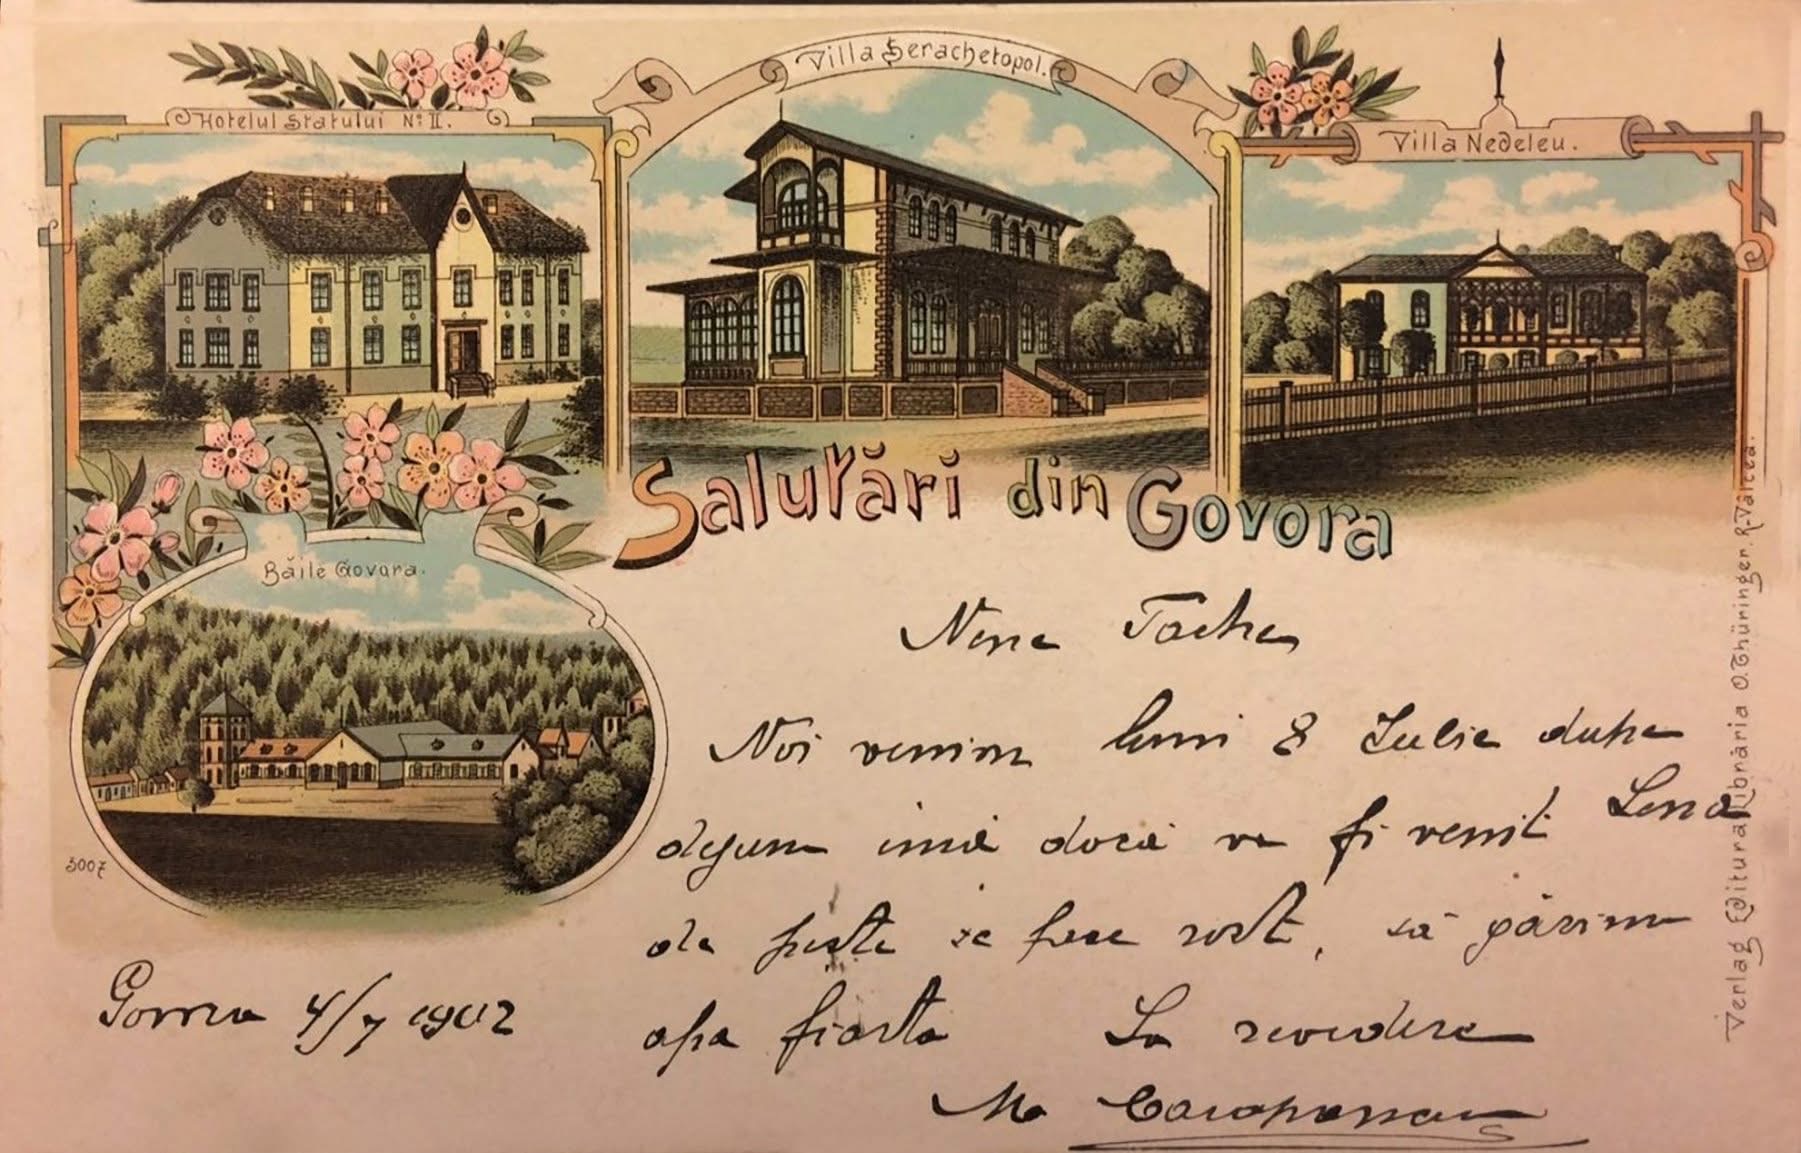 Hotelul Statului No. II.
Villa Serachetopol.
Villa Nedeleu.
Salutări din Govora
Băile Govora.
3007
Nene Tache
Noi venim luni 8 Iulie dupe
dejun inså dacă va fi venit Lena
de peste se face rost, să
apa fiarta La revedere
M.
Govora 4/7 1902
Verlag Editura Librăria O. Thüringer. R-Vâlcea.